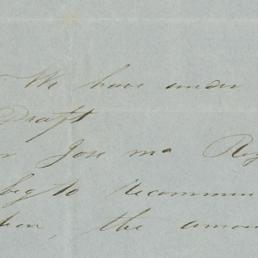 We have under
Draft
Jose ma
beg to recommen
the amou